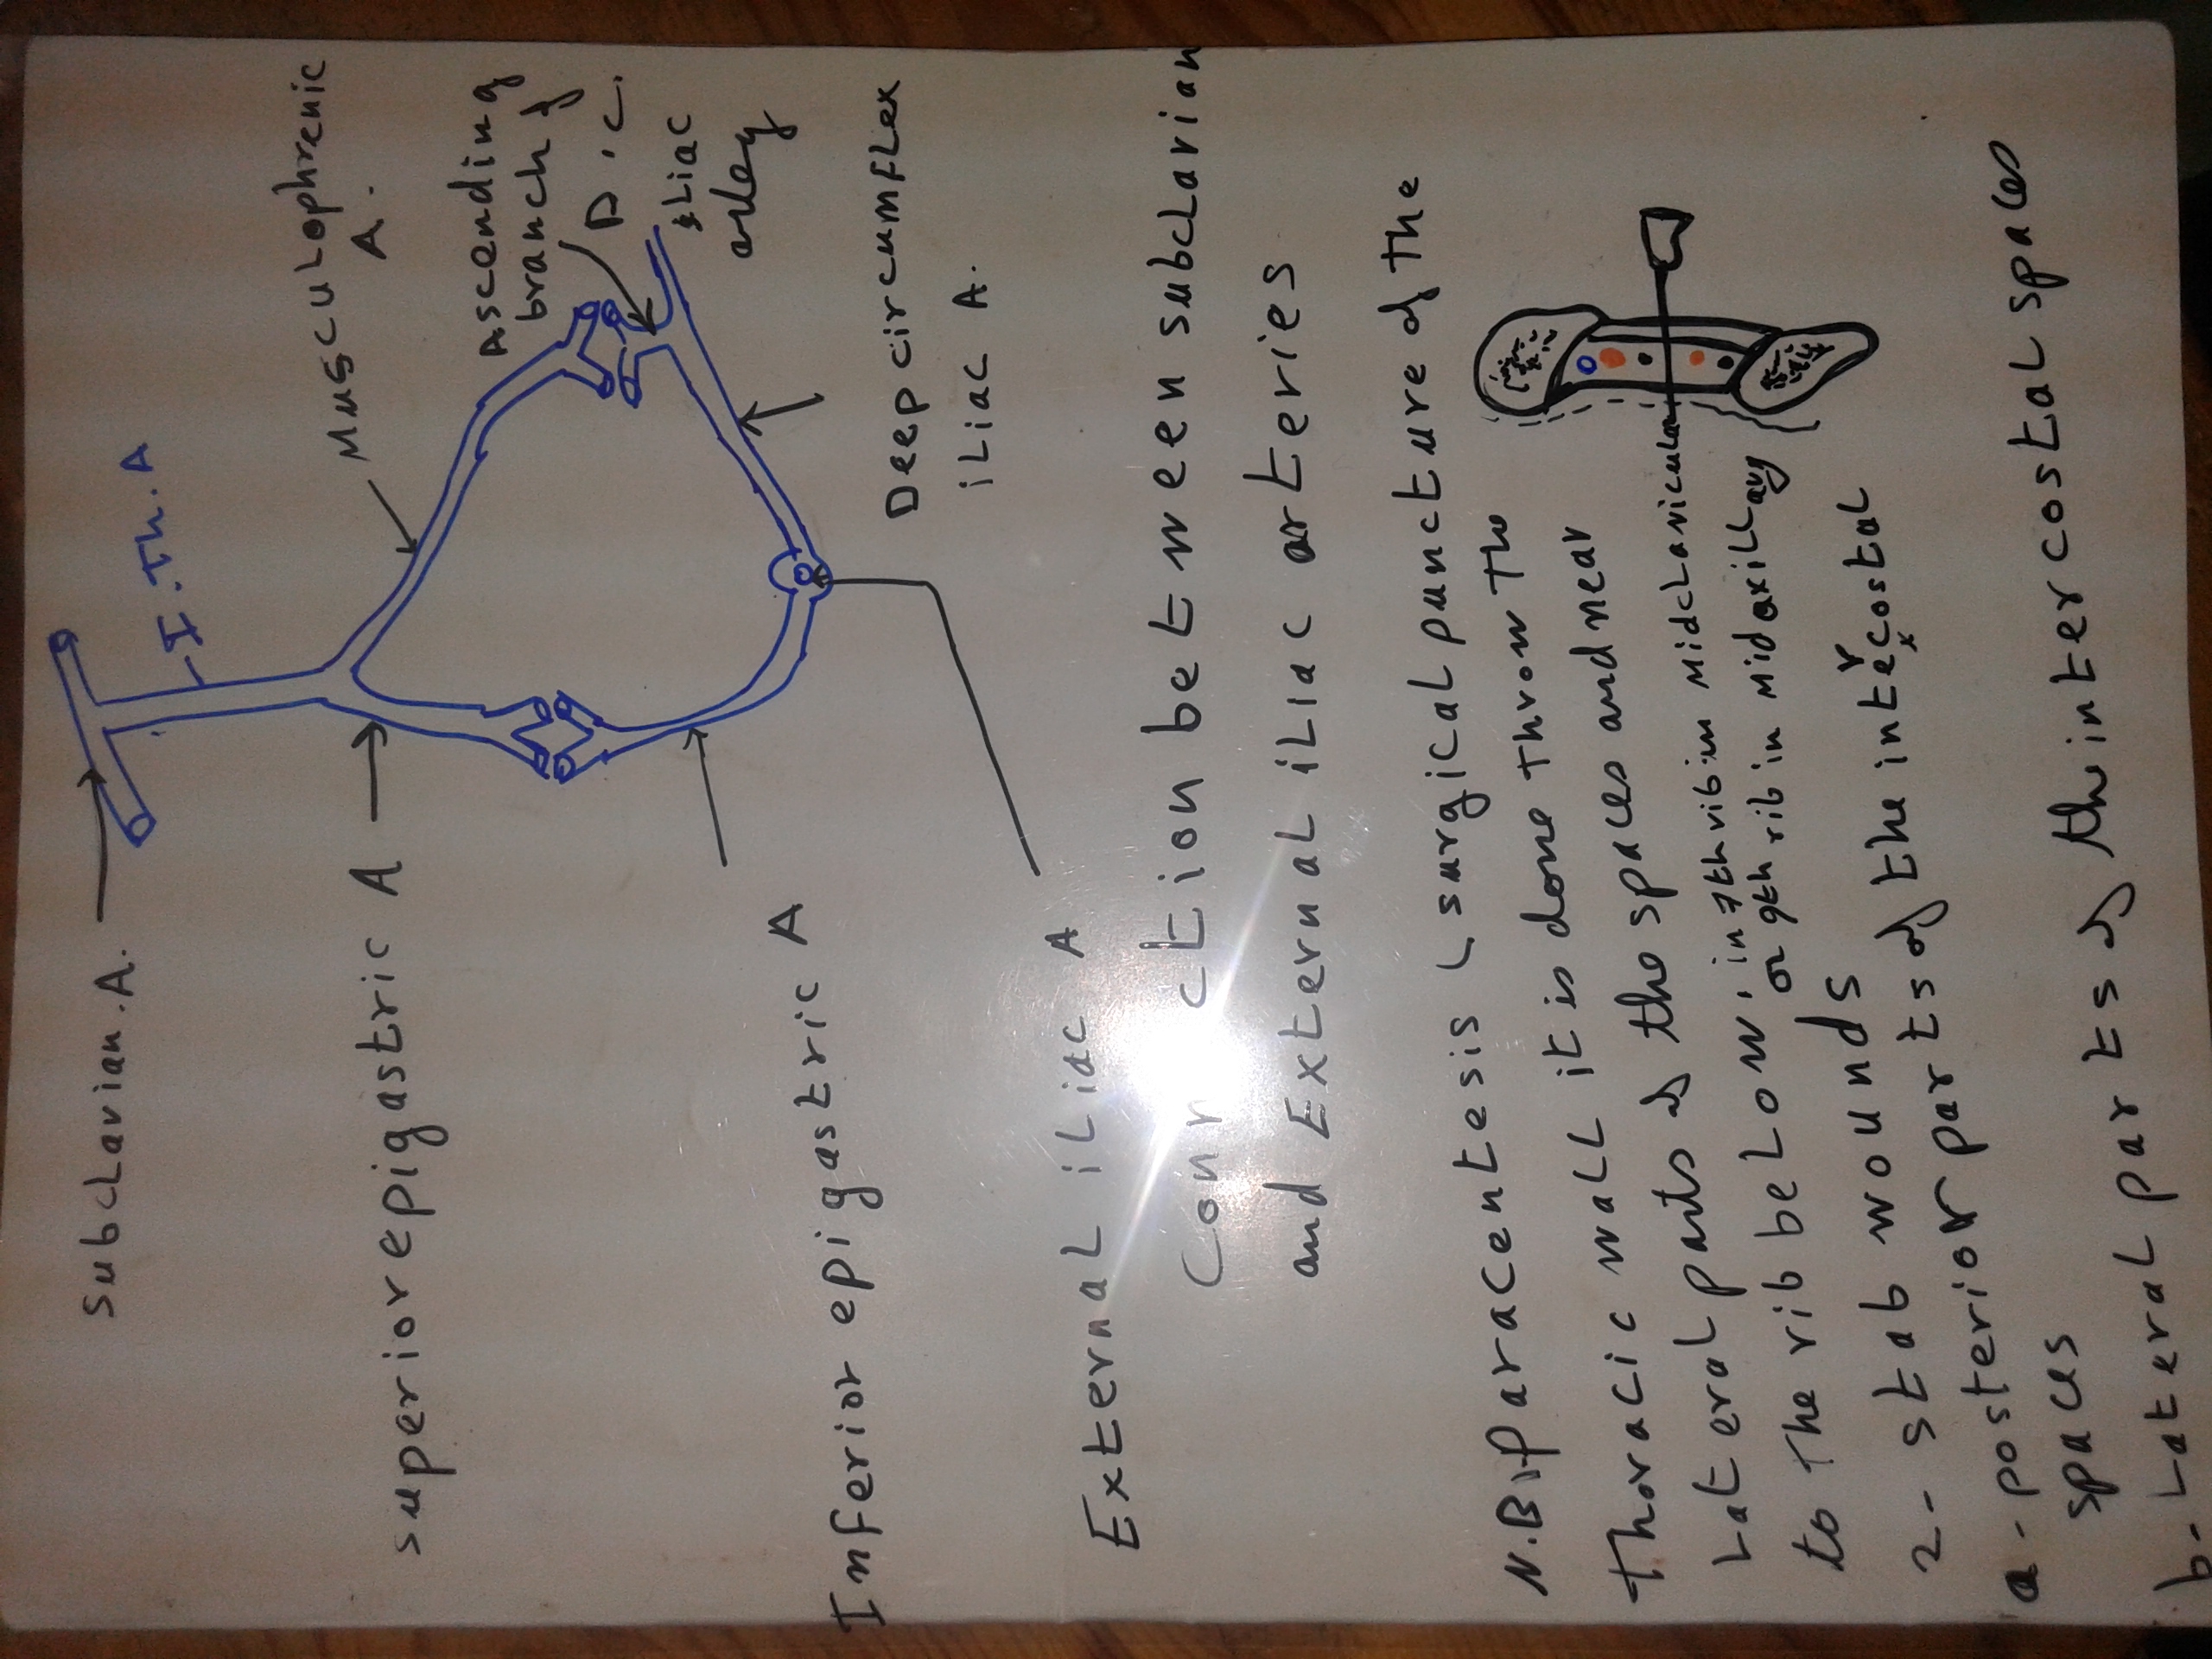 subclavian.A.
I.Th.A
Musculophrenic
A.
superior epigastric A
Ascending
branch of
D.C.
iliac
artery
Inferior epigastric A
Deep circumflex
iliac A.
External iliac A
Connection between subclavian
and External iliac arteries
N.B 1 Paracentesis (surgical puncture of the
thoracic wall it is done throw the
Lateral parts of the spaces and near
to the rib below, in 7th rib in midclavicular
or 9th rib in midaxillary
2- stab wounds
a- posterior parts of the intercostal
spaces
b- Lateral parts of the intercostal spaces